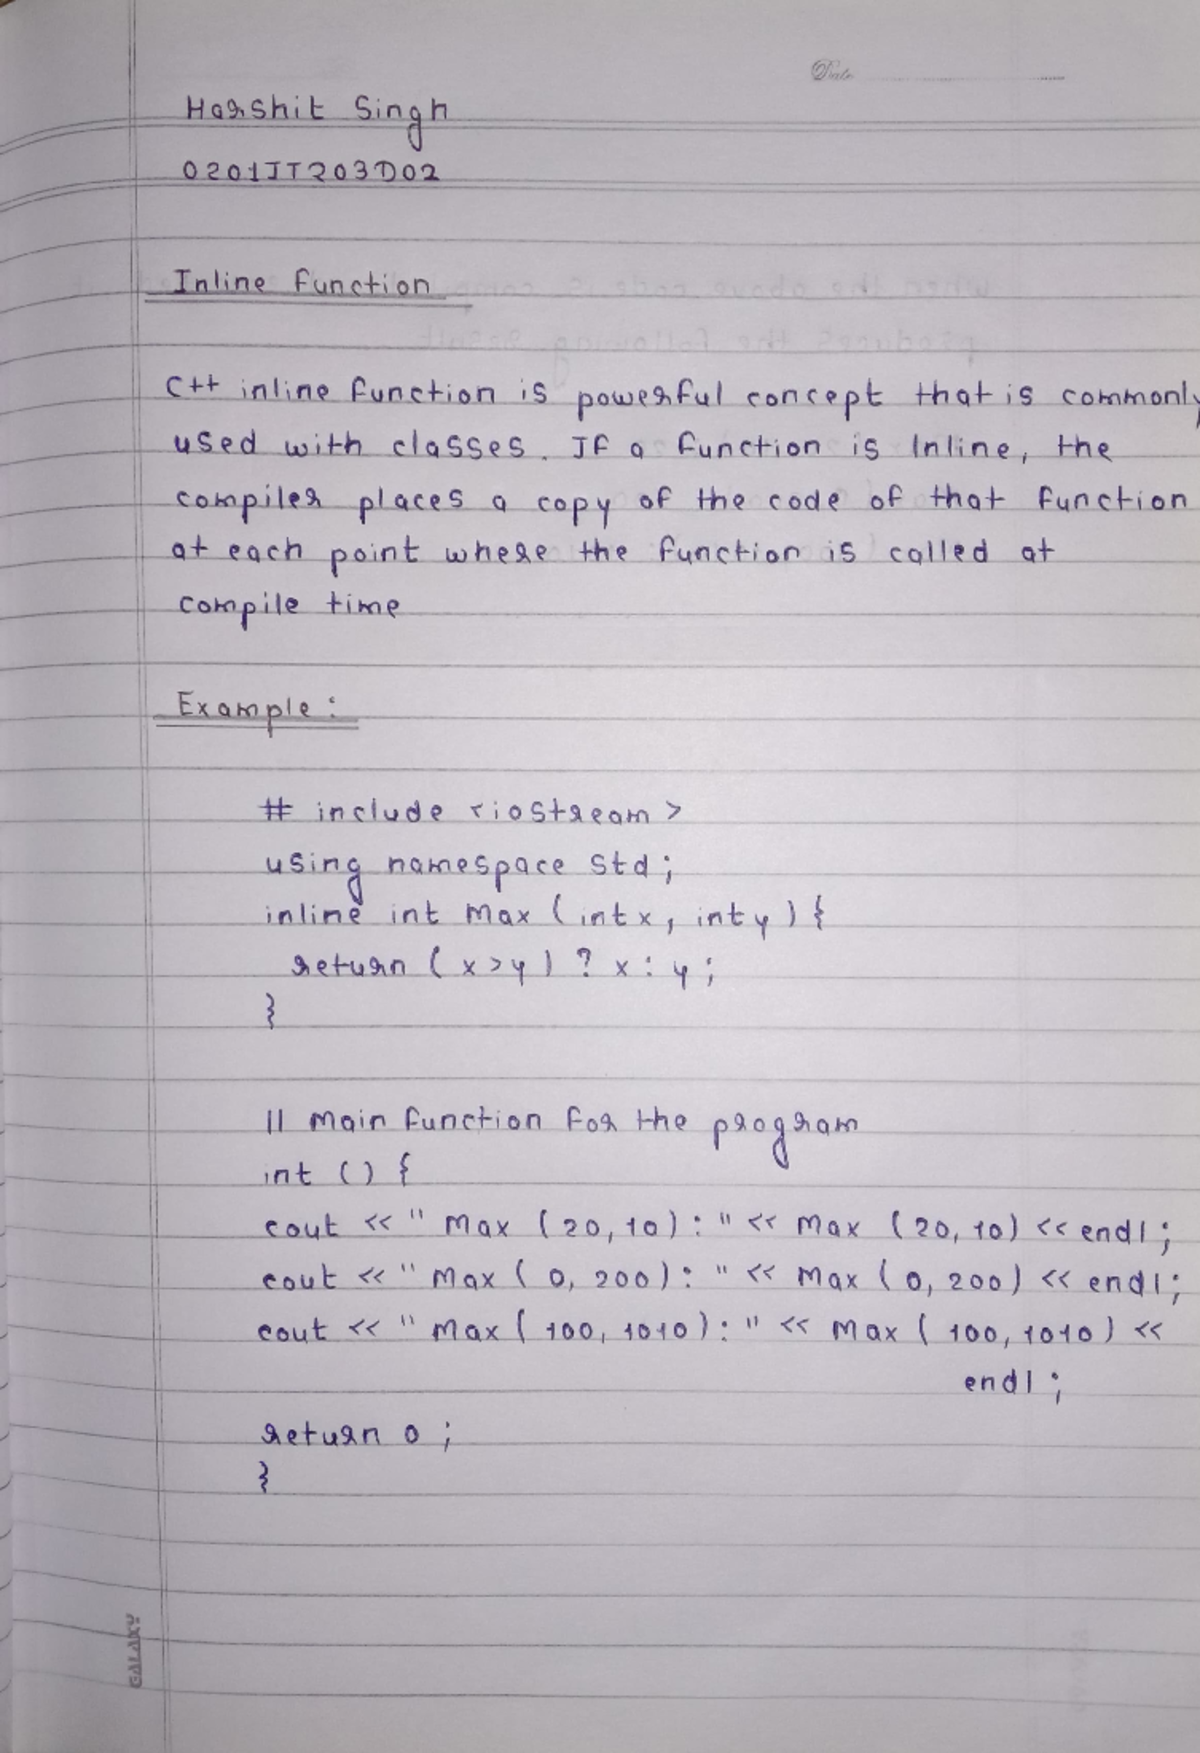 Date
Harshit Singh
0201IT203D02
Inline function
C++ inline function is powerful concept that is commonly
used with classes. If a function is Inline, the
compiler places a copy of the code of that function
at each point where the function is called at
compile time
Example :
# include <iostream>
using namespace std;
inline int max (int x, int y) {
return (x>y) ? x : y ;
}
// Main function for the program
int () {
cout << " Max (20, 10) : " << Max (20, 10) << endl ;
cout << " Max ( 0, 200) : " << Max ( 0, 200) << endl ;
cout << " Max ( 100, 1010) : " << Max ( 100, 1010) <<
endl ;
return 0 ;
}
GALAXY